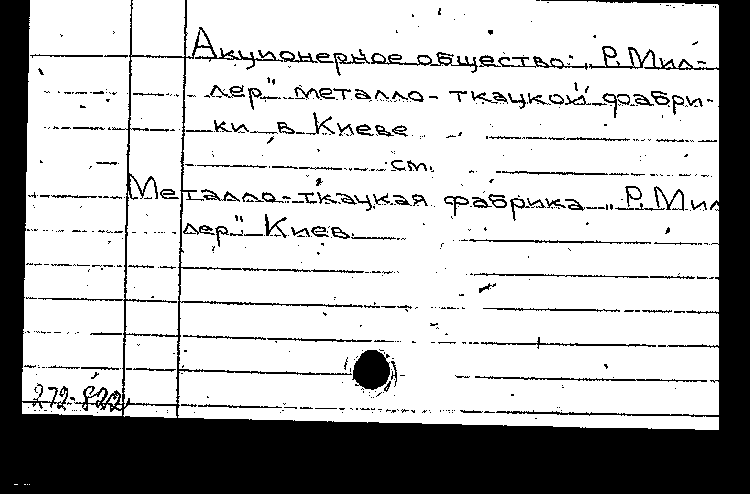 Акционерное общество „Р. Мил-
лер" металло-ткацкой фабри-
ки в Киеве
см.
Металло-ткацкая фабрика „Р. Мил
лер". Киев.
272-822